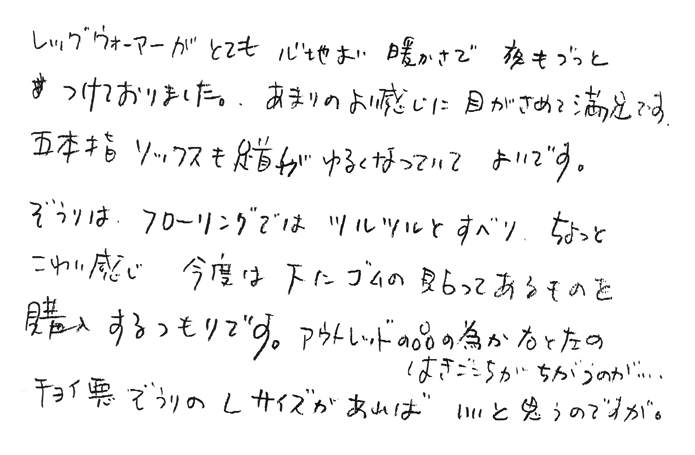 レッグウォーマーがとても心地よい暖かさで 夜もずっと
つけておりました。あまりのよい感じに目がさめて満足です.
五本指ソックスも足首がゆるくなっていて よいです。
ぞうりは、フローリングではツルツルとすべり、ちょっと
こわい感じ 今度は下にゴムの貼ってあるものを
購入するつもりです。アウトレッドの品の為か右と左の
はきごこちがちがうのが…
チョイ悪ぞうりのLサイズがあれば いいと思うのですが。